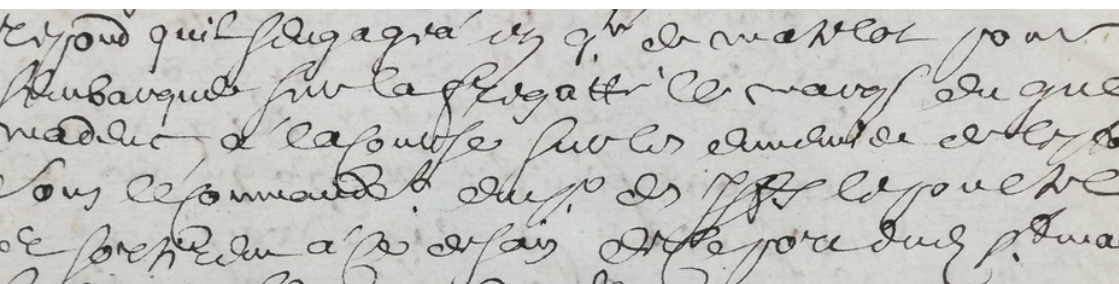 respond quil sengagea en qte de matelot pour
sembarquer sur la fregatte le marqs du que
madeuc a la course sur les ennemis de lesta
sous le commandt du sr le poulvel
et sortirent de ce port dud st ma